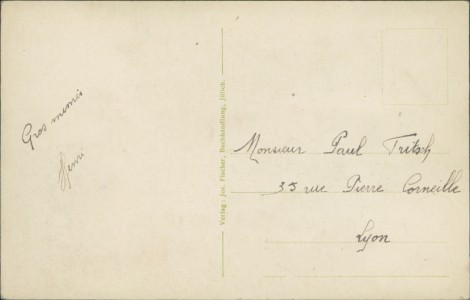 Gros mimis
Henri
Verlag: Jos. Fischer, Buchhandlung, Jülich.
Monsieur Paul Tritsch
35 rue Pierre Corneille
Lyon